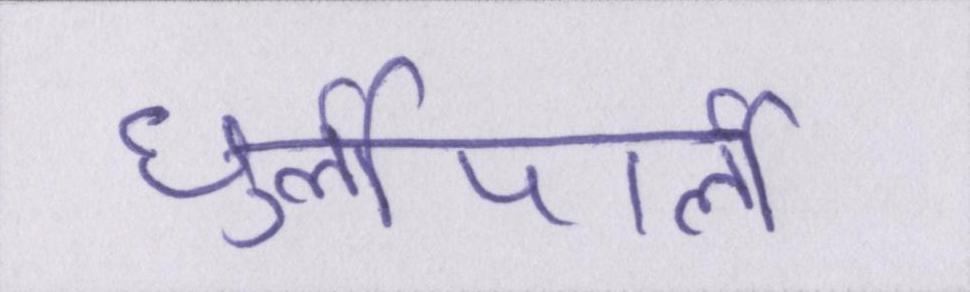 धुलीपाली